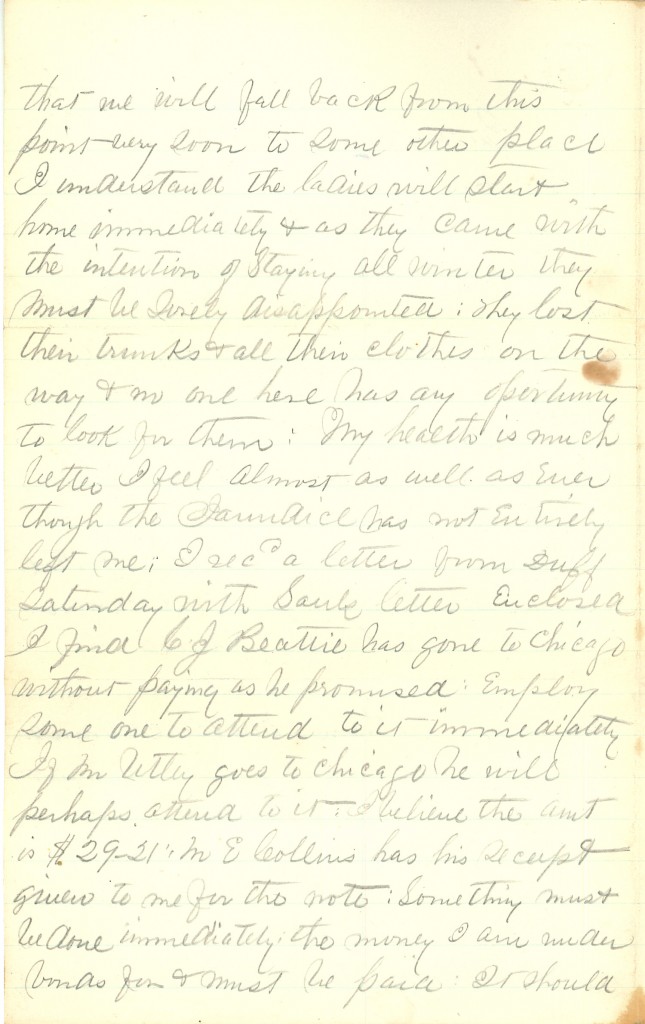 that we will fall back from this
point very soon to some other place
I understand the ladies will start
home immediately & as they came with
the intention of staying all winter they
must be sorely disappointed : They lost
their trunks & all their clothes on the
way & no one here has any oportunity
to look for them : My health is much
better I feel almost as well as Ever
though the Jaundice has not Entirely
left me ; I recd a letter from Duff
Saturday with letter Enclosed
I find C. J Beattie has gone to Chicago
without paying as he promised : Employ
some one to attend to it immediately
If Mr Utley goes to Chicago he will
perhaps attend to it : I believe the amt
is $29-21 : M E Collins has his receipt
given to me for the note : Something must
be done immediately : the money I am under
bonds for & must be paid : It should